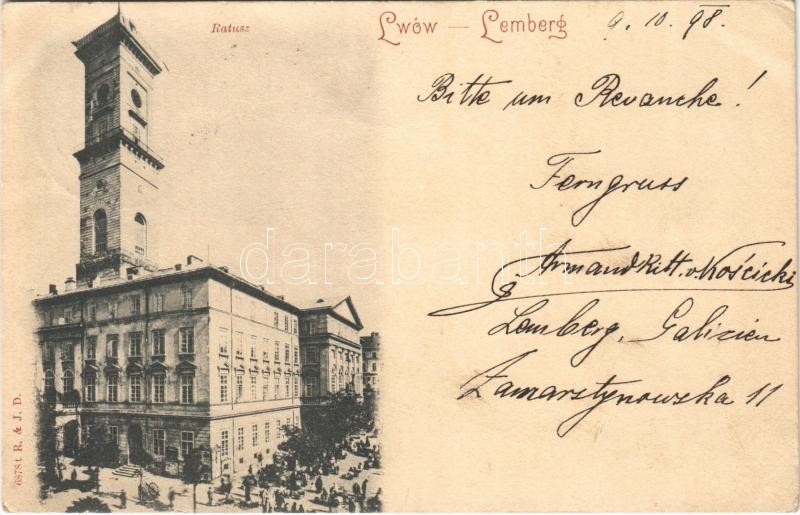 Ratusz
Lwów — Lemberg
9. 10. 98.
Bitte um Revanche!
Ferngruss
Armand Ritt. v. Kościcki
Lemberg, Galizien
Zamarstynowska 11
darabanth
6878 t R. & J. D.